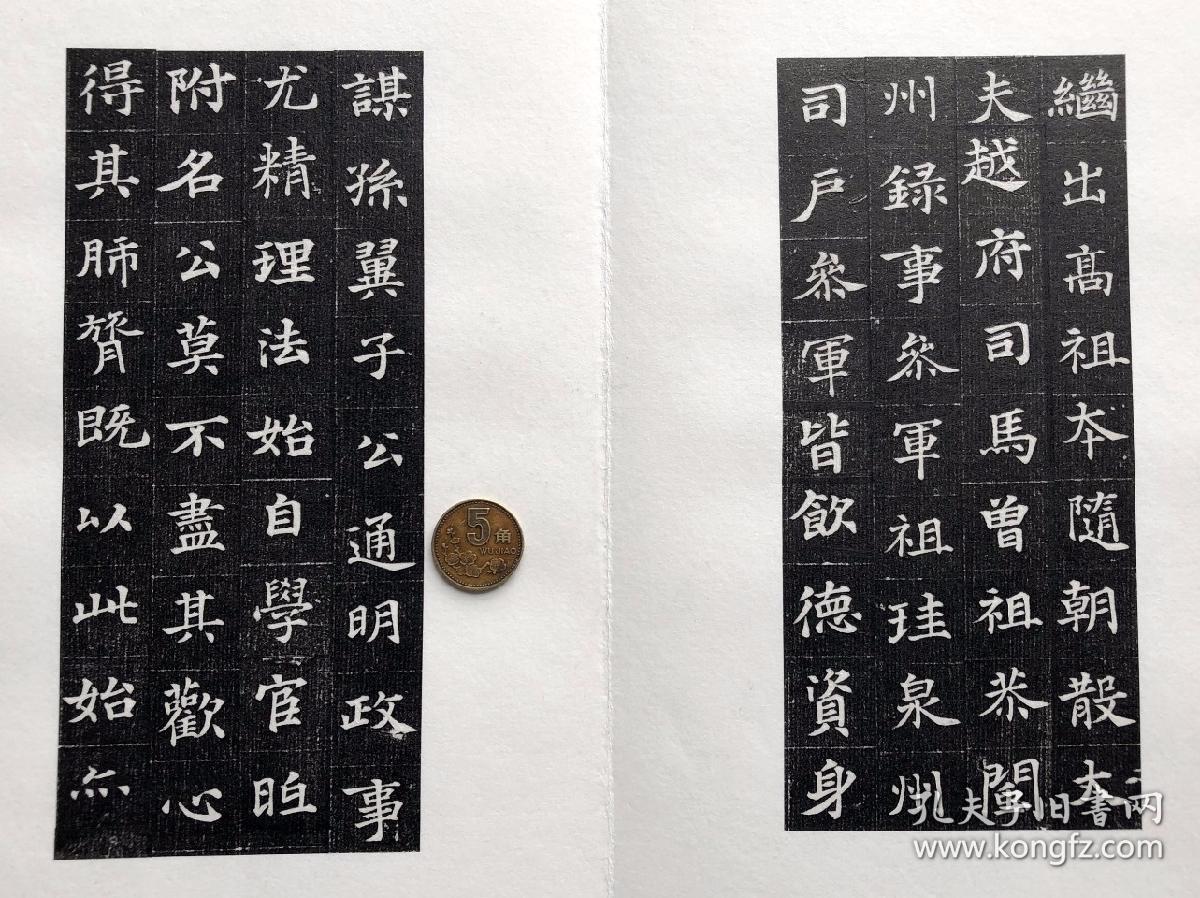 繼出髙祖夲隨朝散大
夫越府司馬曾祖恭閩
州録事叅軍祖珪泉州
司戶叅軍皆飲德資身
謀孫翼子公通明政事
尤精理法始自學官
附名公莫不盡其歡心
得其肺膂既以此始亦
5角
WU JIAO
孔夫子旧书网
www.kongfz.com